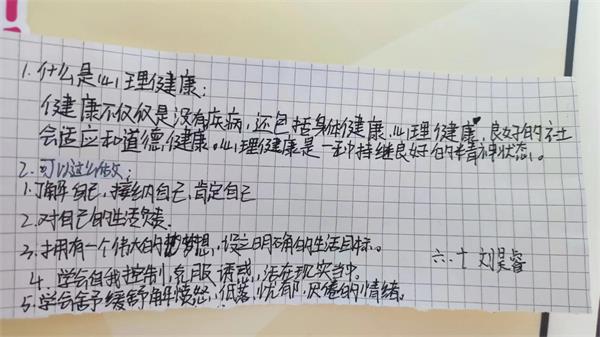 1.什么是心理健康:
健康不仅仅是没有疾病,还包括身体健康、心理健康、良好的社
会适应和道德健康。心理健康是一种持继良好的精神状态。
2.可以这么做:
1.了解自己,接纳自己,肯定自己
2.对自己的生活负责.
3.拥有一个伟大的梦想,设立明确的生活目标。
六.十 刘昊睿
4.学会自我控制,克服诱惑,活在现实当中。
5.学会舒缓舒解愤怒,低落,忧郁,厌倦的情绪。